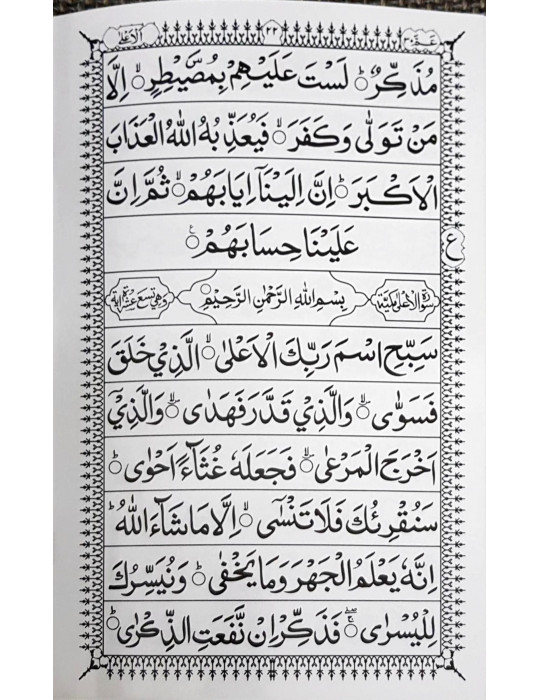 عمّ ٣٠ ٢٢ الاعلى
مُذَكِّرٌ ۝ؕ لَسْتَ عَلَيْهِمْ بِمُصَۜيْطِرٍ ۝ۙ اِلَّا
مَنْ تَوَلّٰى وَكَفَرَ ۝ۙ فَيُعَذِّبُهُ اللّٰهُ الْعَذَابَ
الْاَكْبَرَ ۝ؕ اِنَّ اِلَيْنَاۤ اِيَابَهُمْ ۝ۙ ثُمَّ اِنَّ
عَلَيْنَا حِسَابَهُمْ ۝
ع
سُوْرَةُ الْاَعْلٰى مَكِّيَّةٌ بِسْمِ اللّٰهِ الرَّحْمٰنِ الرَّحِيْمِ ۝ وَهِيَ تِسْعَ عَشْرَةَ اٰيَةً
سَبِّحِ اسْمَ رَبِّكَ الْاَعْلٰى ۝ۙ الَّذِيْ خَلَقَ
فَسَوّٰى ۝ۙ وَالَّذِيْ قَدَّرَ فَهَدٰى ۝ۙ وَالَّذِيْۤ
اَخْرَجَ الْمَرْعٰى ۝ۙ فَجَعَلَهٗ غُثَآءً اَحْوٰى ۝ؕ
سَنُقْرِئُكَ فَلَا تَنْسٰٓى ۝ۙ اِلَّا مَا شَآءَ اللّٰهُ ؕ
اِنَّهٗ يَعْلَمُ الْجَهْرَ وَمَا يَخْفٰى ۝ؕ وَنُيَسِّرُكَ
لِلْيُسْرٰى ۝ۚۖ فَذَكِّرْ اِنْ نَّفَعَتِ الذِّكْرٰى ۝ؕ